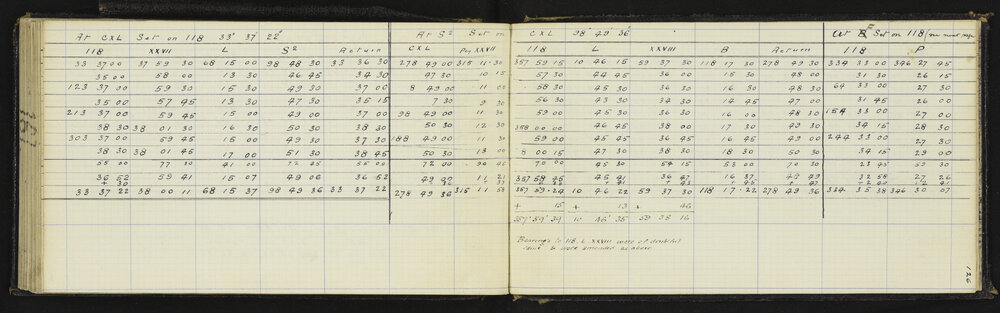 At CXL Set on 118 33° 37' 22" At S² Set on CXL 98° 49' 36" At E Set on 118 (see next page
118 XXVII L S² Return CXL Peg XXVII 118 L XXVIII B Return 118 P
33 37 00 37 59 30 68 15 00 98 48 30 33 36 30 278 49 00 315 11 30 357 59 15 10 46 15 59 37 30 118 17 30 278 49 30 334 33 00 346 27 45
35 00 58 00 13 30 46 45 34 30 47 30 10 15 57 30 44 45 36 00 15 30 48 00 31 30 26 15
123 37 00 59 30 15 30 49 30 37 00 8 49 00 11 00 58 30 45 30 36 30 16 30 48 30 64 33 00 27 30
35 00 57 45 13 30 47 30 35 15 7 30 9 30 56 30 43 30 34 30 14 45 47 00 31 45 26 00
213 37 00 59 45 15 00 49 00 37 00 98 49 00 11 30 59 00 45 30 36 30 16 00 48 30 154 33 00 27 00
38 30 38 01 30 16 30 50 30 38 30 50 30 12 30 358 00 00 46 45 38 00 17 30 49 30 34 15 28 30
303 37 00 59 45 15 00 49 30 37 30 188 49 00 11 30 59 00 45 45 36 45 16 45 49 00 244 33 00 27 30
38 30 38 01 45 17 00 51 30 38 45 50 30 13 00 8 00 15 47 30 38 30 18 30 50 30 34 15 29 00
55 00 77 30 41 00 72 45 55 00 72 00 90 45 70 00 45 30 54 15 53 00 70 30 23 45 59 30
36 52 59 41 15 07 49 06 36 52 49 00 11 21 357 58 45 45 41 36 47 16 37 48 49 32 58 27 26
33 37 22 38 00 11 68 15 37 98 49 36 33 37 22 278 49 36 315 11 58 357 59 24 10 46 22 59 37 30 118 17 22 278 49 36 334 35 38 346 30 07
+ 15 + 13 + 46
357° 59' 39 10 46' 35 59 38 16
Bearings to 118, L XXVIII were of doubtful
value & were amended as above
126